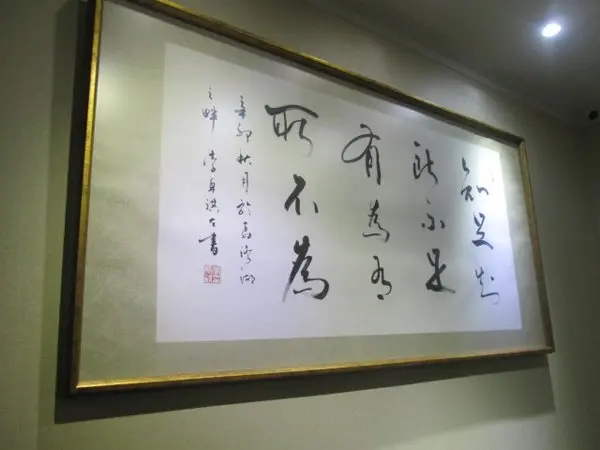 知足知
所不足
有為有
所不為
辛卯秋月於湖
之畔 書